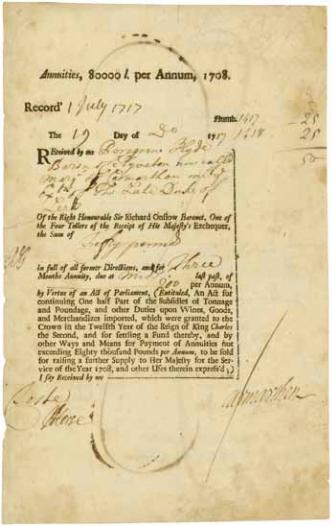 Annuities, 80000 l. per Annum, 1708.
Record' 1 July 1717
Numb. 1417 - 25
The 19 Day of Do 1717 1418 - 25
50
Received by me Peregrine Hyde
Baron
of The Late Duke of
Leeds
Of the Right Honourable Sir Richard Onslow Baronet, One of
the Four Tellers of the Receipt of His Majesty's Exchequer,
the Sum of
fifty pounds
In full of all former Directions, and for Three
Months Annuity, due at last past, of
per Annum,
by Vertue of an Act of Parliament, (Entituled, An Act for
continuing One half Part of the Subsidies of Tonnage
and Poundage, and other Duties upon Wines, Goods,
and Merchandizes imported, which were granted to the
Crown in the Twelfth Year of the Reign of King Charles
the Second, and for settling a Fund thereby, and by
other Ways and Means for Payment of Annuities not
exceeding Eighty thousand Pounds per Annum, to be sold
for raising a further Supply to Her Majesty for the Service
of the Year 1708, and other Uses therein express'd)
I say Received by me
Carmarthen